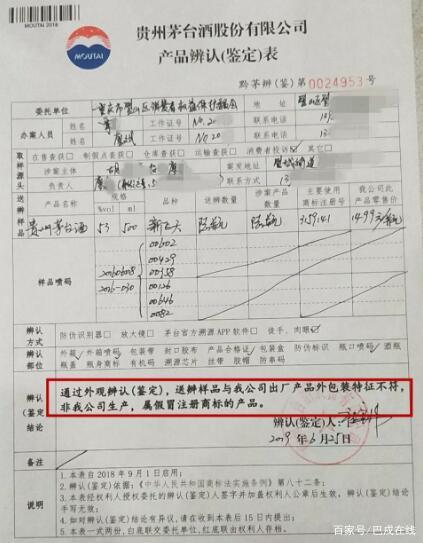 MOUTAI 2018
贵州茅台酒股份有限公司
MOUTAI
产品辨认(鉴定)表
黔茅辨(鉴)第0024953号
委托单位 重庆市璧山区消费者权益保护委员会 地址 璧山区
办案人员 姓名 No.20 联系电话 13
姓名 No.20 联系电话 13
取样源头 在售查获□ 制假点查获□ 仓库查获□ 运输查获□ 消费者投诉 案发地点 璧城街道
涉案主体
负责人 联系方式 13
送辨样品 产品名称 规格 %vol ml 包装 送辨数量 涉案产品数量 主要使用商标注册号 我公司此产品零售价
贵州茅台酒 53 500 3159141 1499元/瓶
样品喷码 20160608 2016-030
00602
00429
00338
00126
00646
0082
辨认方式 防伪识别器□ 放大镜□ 茅台官方溯源APP软件□ 徒手、肉眼
辨认(鉴定)结论 外观 外箱喷码 包装带 封口胶布 产品合格证 包装盒 防伪标识 喷码 酒瓶
瓶盖 瓶身商标 彩带 溯源芯片 胶帽 防串码
通过外观辨认(鉴定),送辨样品与我公司出厂产品外包装特征不符,
非我公司生产,属假冒注册商标的产品。
辨认(鉴定)人:
2019年6月25日
备注
说明 1.本表自2018年9月1日启用;
2.辨认(鉴定)依据:《中华人民共和国商标法实施条例》第八十二条;
3.本表经权利人授权委托的辨认(鉴定)人签字并加盖权利人公章后生效,辨认(鉴定)结论
手写无效;
4.如对辨认(鉴定)结论有异议,请在收到本表后15日内提出;
5.本表一式两份,白底联交委托单位,红底联由权利人归档。
百家号/巴戍在线